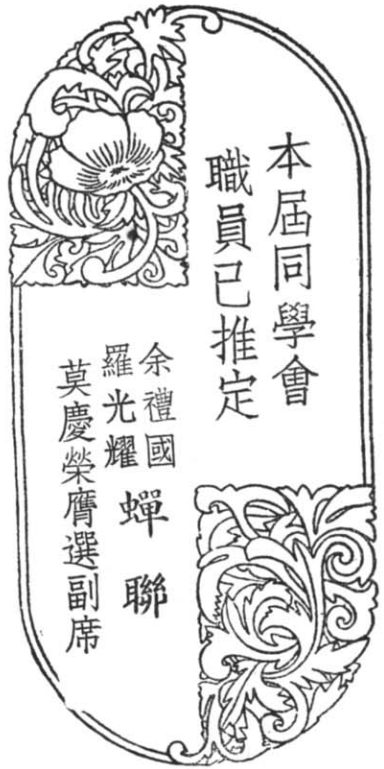 本屆同學會
職員已推定
余禮國
羅光耀
蟬聯
莫慶榮膺選副席